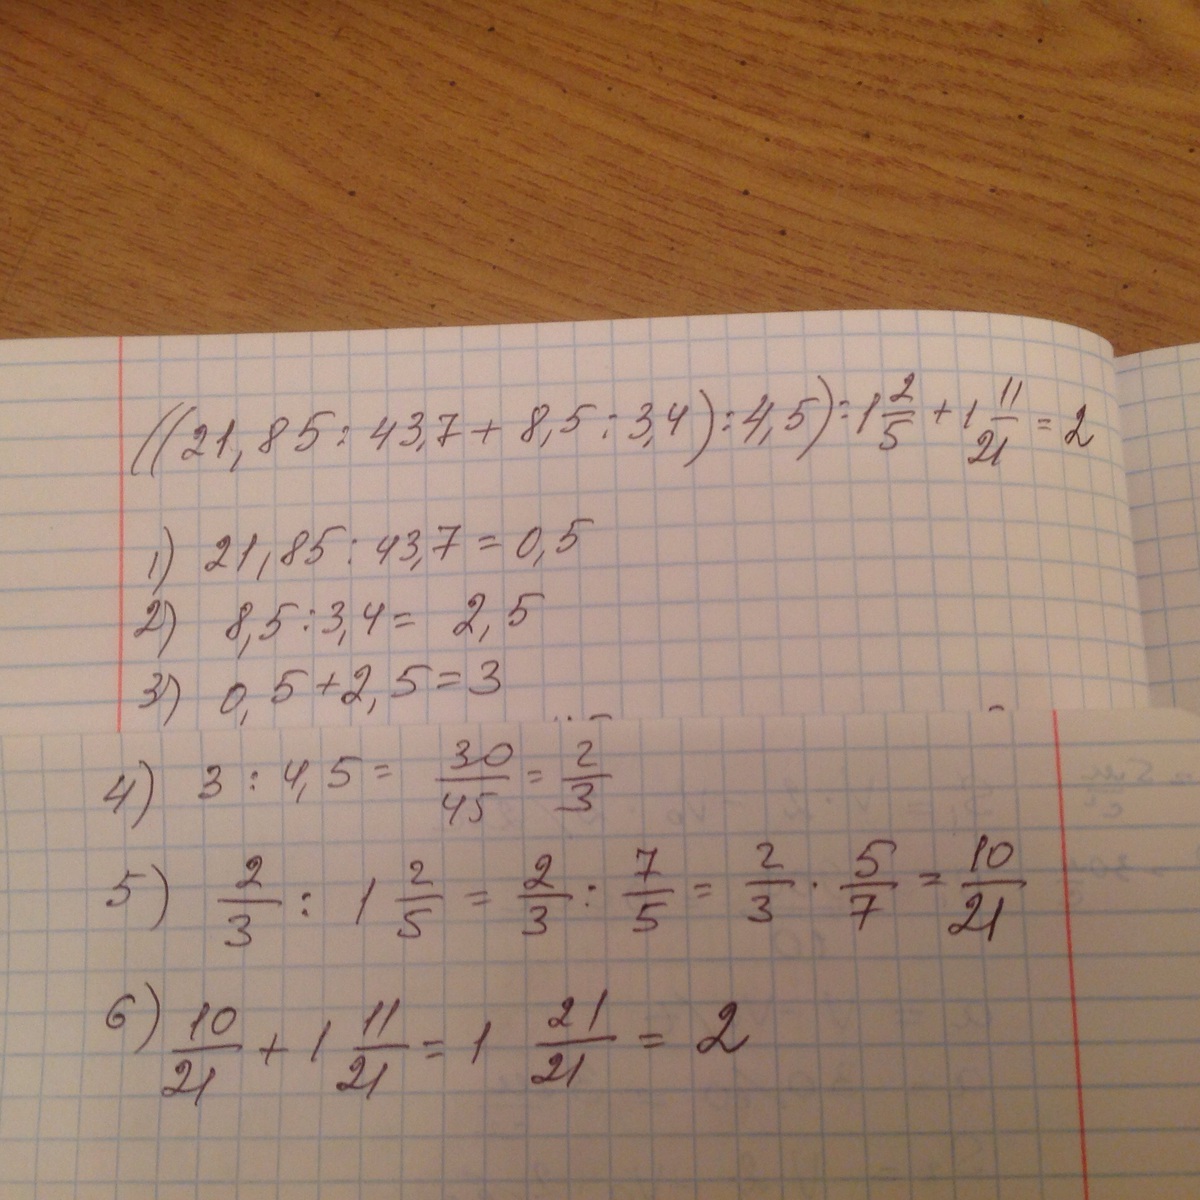 ((21,85 : 43,7 + 8,5 : 3,4) : 4,5) : 1 2/5 + 1 11/21 = 2
1) 21,85 : 43,7 = 0,5
2) 8,5 : 3,4 = 2,5
3) 0,5 + 2,5 = 3
4) 3 : 4,5 = 30/45 = 2/3
5) 2/3 : 1 2/5 = 2/3 : 7/5 = 2/3 · 5/7 = 10/21
6) 10/21 + 1 11/21 = 1 21/21 = 2